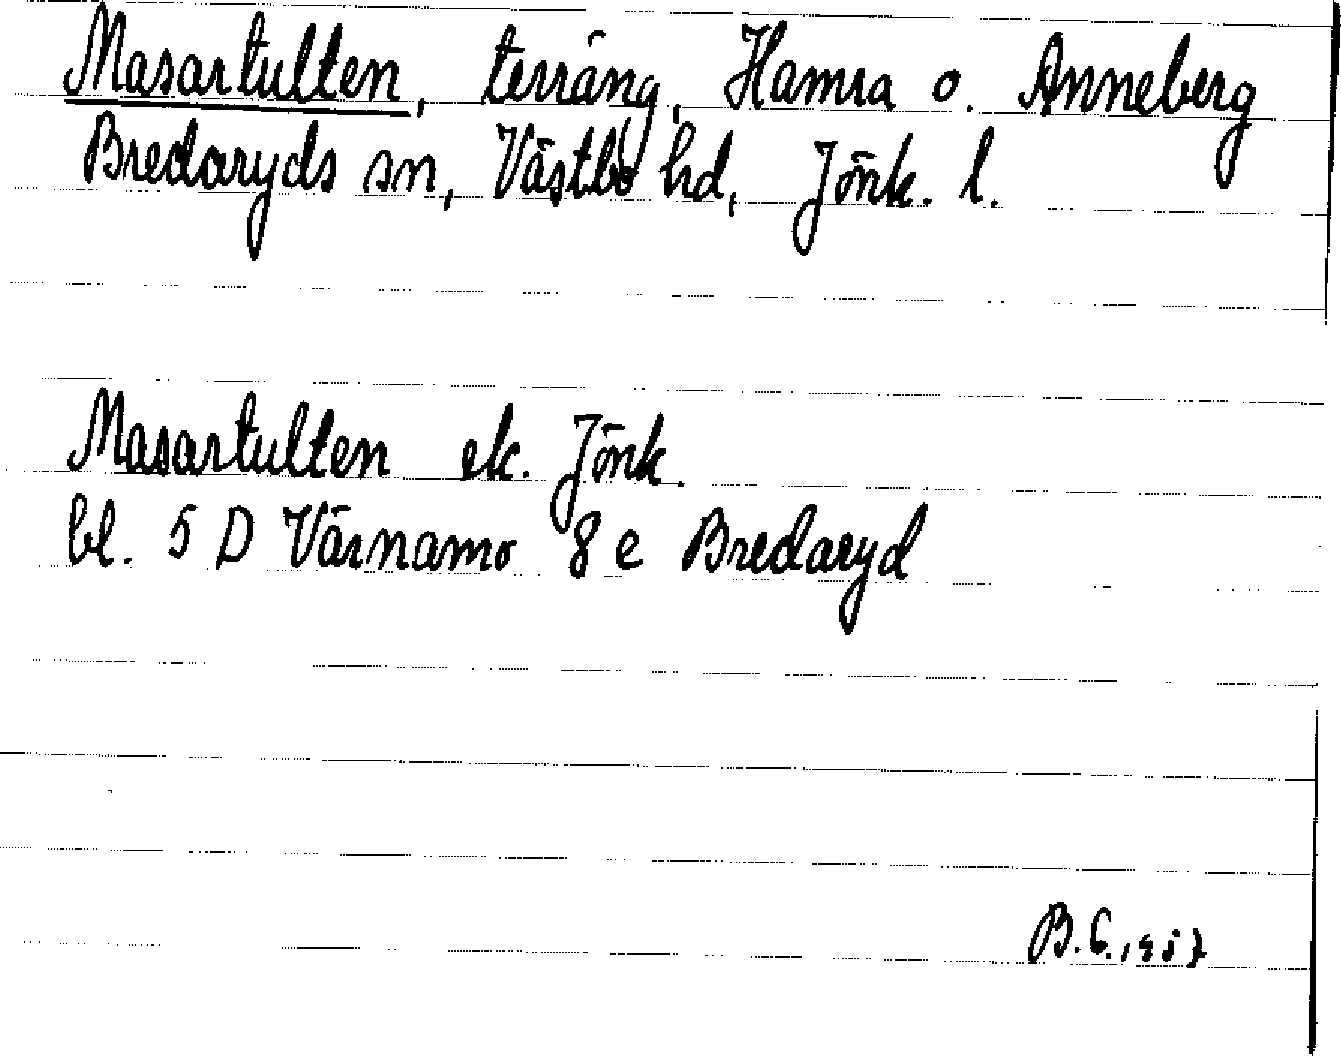 Masartulten, terräng, Hamra o. Anneberg
Bredaryds sn, Västbo hd, Jönk. l.
Masartulten ek. Jönk.
bl. 5 D Värnamo 8 e Bredaryd
B.G. 1957